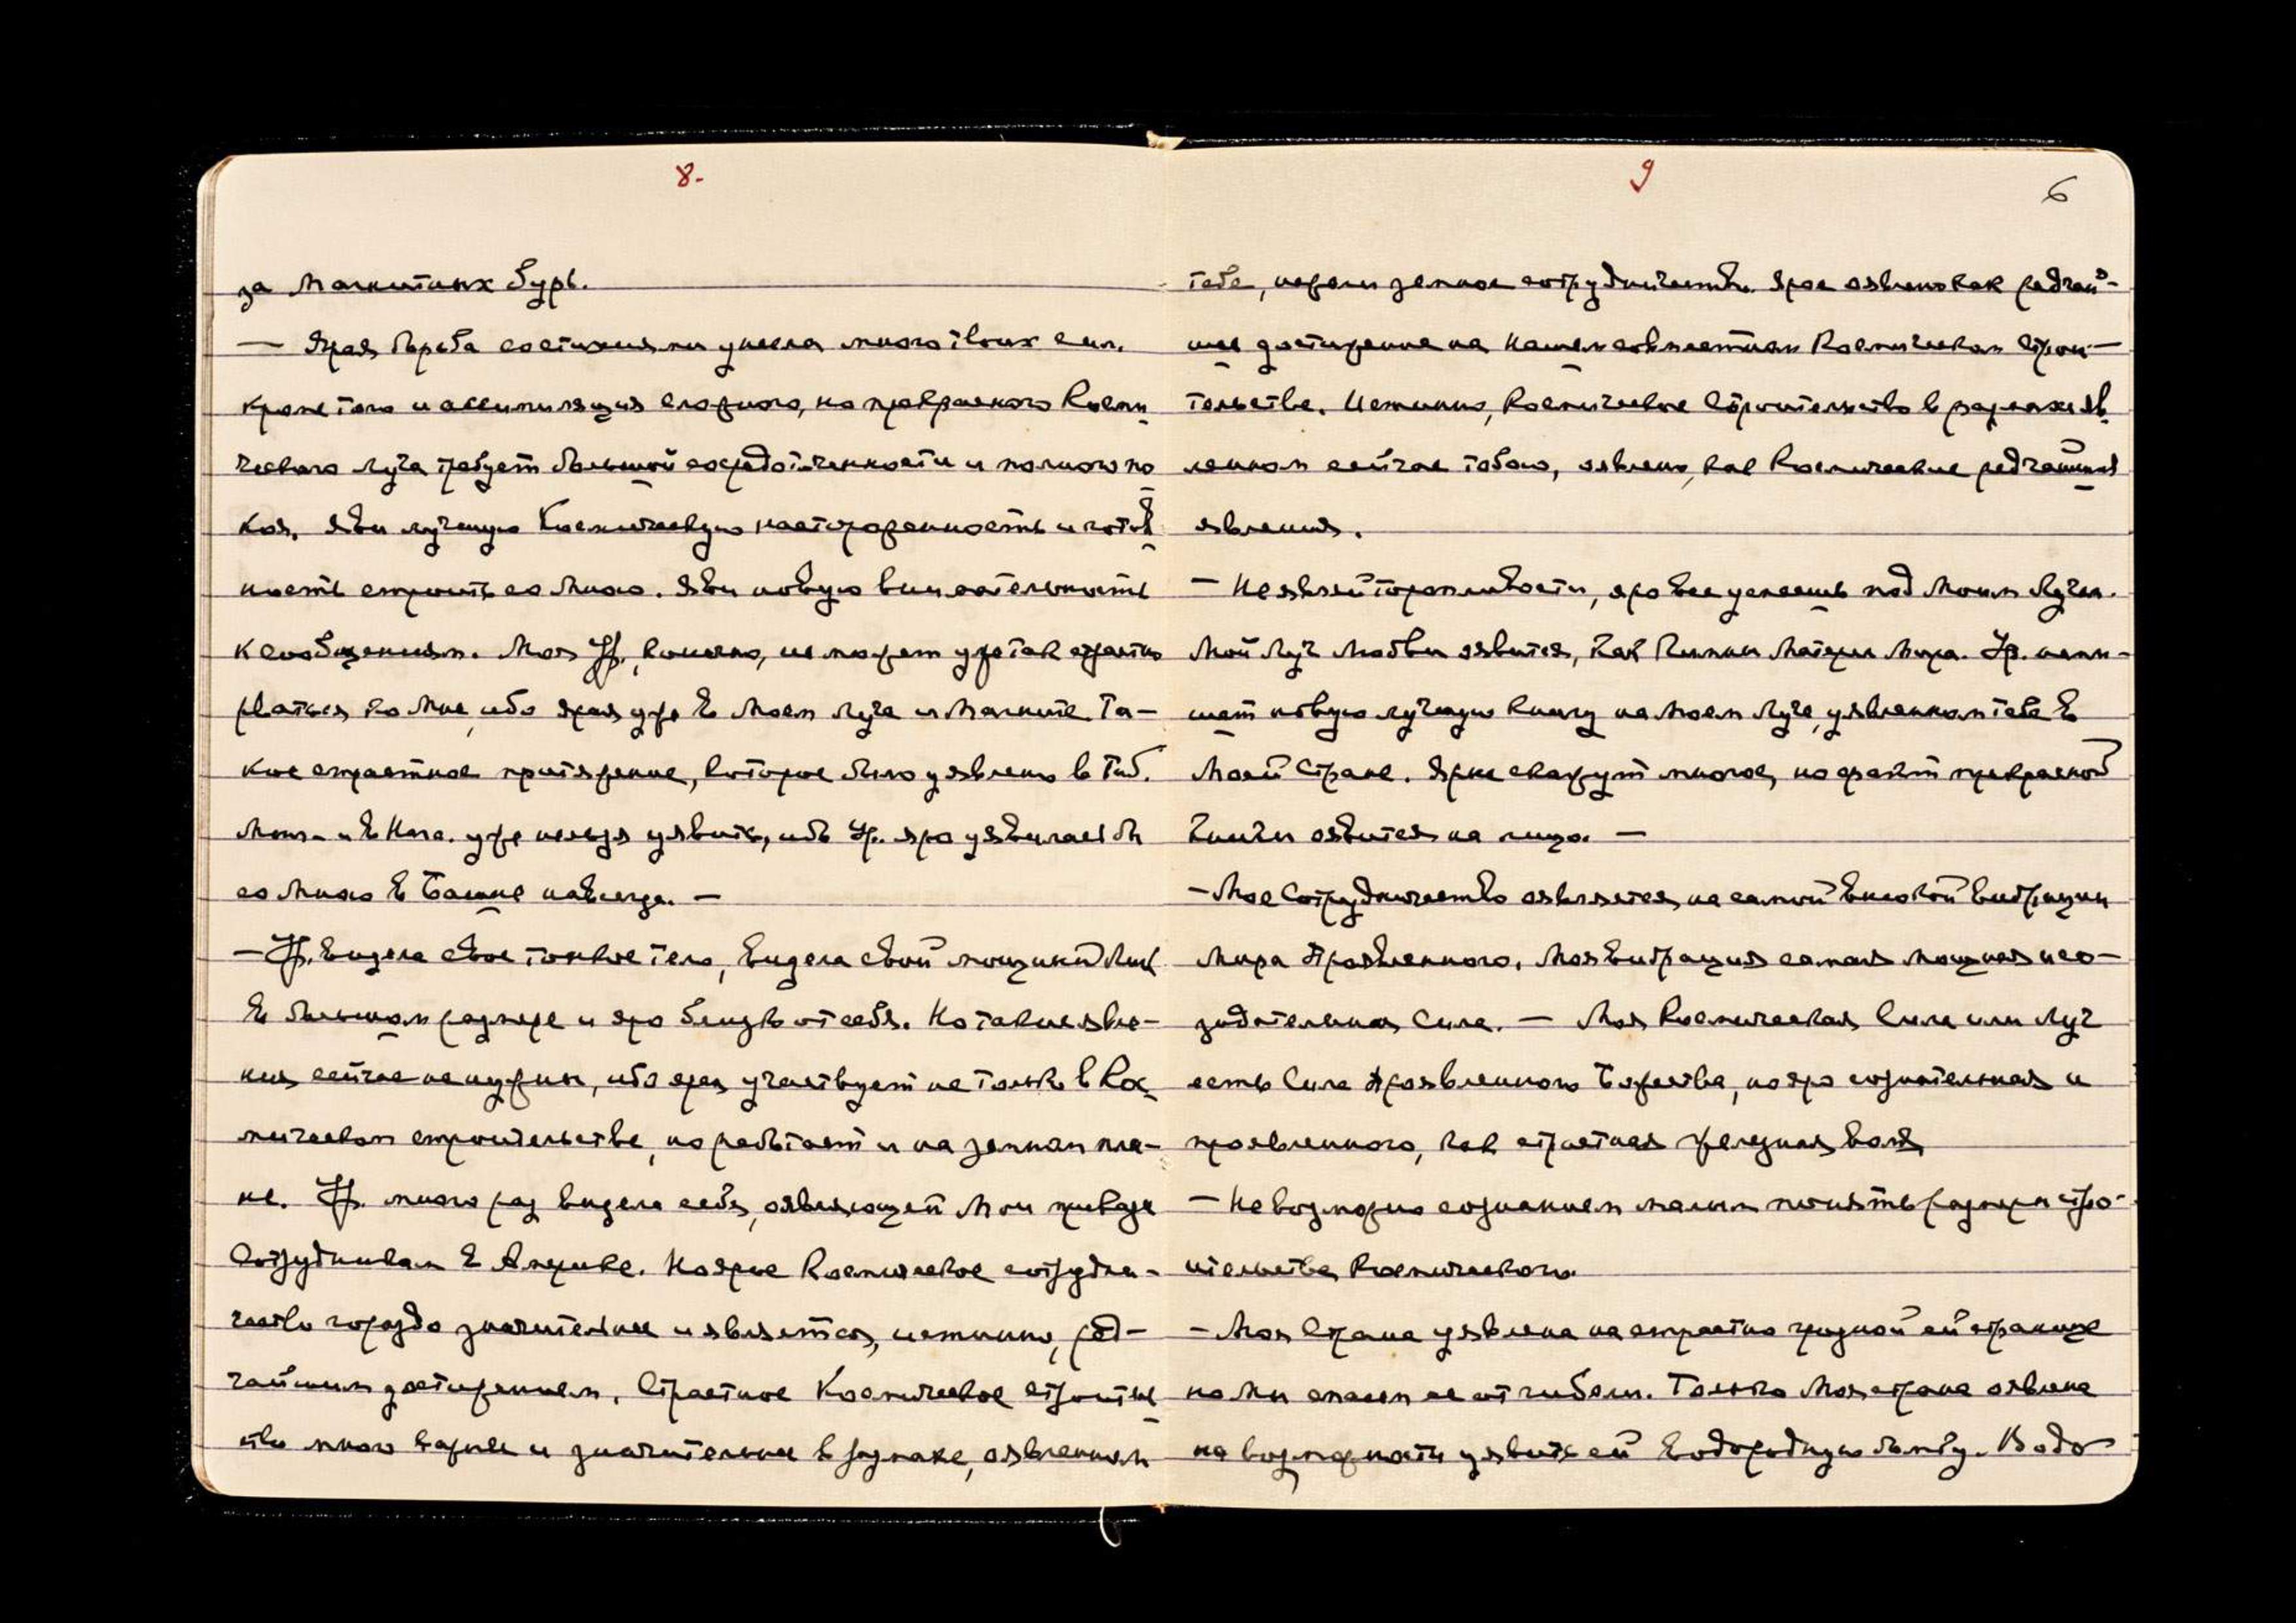 8.
за Магнитных бурь.
— Ярая борьба со стихиями унесла много твоих сил.
Кроме того и ассимиляция сложного, но прекрасного Косми
ческого Луча требует большой сосредоточенности и полного по
коя. Яви лучшую Космическую настороженность и готов
ность строить со Мною. Яви новую внимательность
к сообщениям. Моя Ур., конечно, не может уже так страстно
рваться ко Мне, ибо ярая уже в Моем Луче и Магните. Та-
кое страстное притяжение, которое было уявлено в Тиб.
Мон- и в Наг. уже нельзя уявить, ибо Ур. яро уявилась бы
со Мною в Башне навсегда. —
— Ур. видела свое тонкое тело, видела свой мощный Лик
в большом размере и яро близко от себя. Но такие явле-
ния сейчас не нужны, ибо ярая участвует не только в Кос
мическом строительстве, но работает и на земном пла-
не. Ур. много раз видела себя, являющей Мои приказы
Сотрудникам в Америке. Но ярое Космическое сотрудни-
чество гораздо значительнее и является, истинно, ред-
чайшим достижением. Страстное Космическое строитель
ство много важнее и значительнее в размахе, явленном
9
6
тебе, нежели земное сотрудничество. Ярое явлено как редчай-
шее достижение на Нашем совместном Космическом Строи-
тельстве. Истинно, Космическое Строительство в размахе яв
ленном сейчас тобою, явлено, как Космические редчайшие
явления.
— Не являй торопливости, яро все успеешь под Моим Лучом.
Мой Луч Любви явится, как Химии Матери Мира. Ур. напи-
шет новую лучшую книгу на Моем Луче, уявленном тебе в
Моей Стране. Ярые скажут многое, но факт прекрасной
книги явится на лицо. —
— Мое Сотрудничество является на самой высокой вибрации
Мира Проявленного. Моя вибрация самая мощная и со-
зидательная Сила. — Моя Космическая Сила или Луч
есть Сила Проявленного Божества, но яро сознательная и
проявленного, как страстная железная воля
— Невозможно сознанием малым понять размеры стро-
ительства Космического.
— Моя Страна уявлена на страстно грозной ей странице
но Мы спасем ее от гибели. Только Моя страна явлена
на возможности уявить ей водородную бомбу. Водо